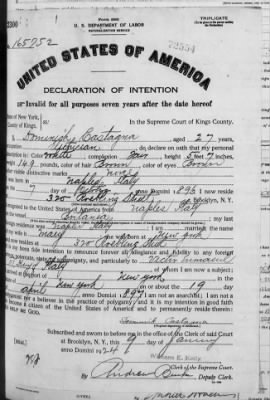 Form 2203
U. S. DEPARTMENT OF LABOR
NATURALIZATION SERVICE
TRIPLICATE
165952
UNITED STATES OF AMERICA
DECLARATION OF INTENTION
Invalid for all purposes seven years after the date hereof
State of New York,
County of Kings.
In the Supreme Court of Kings County.
Dominick Castagna, aged 27 years,
occupation, do declare on oath that my personal
description is: Color white, complexion Fair, height 5 feet 7 inches,
weight pounds, color of hair Brown, color of eyes Brown
other visible distinctive marks none
Naples Italy
on the 7 day of, anno Domini 1896; I now reside
at 320 Street, Brooklyn, N. Y.
I emigrated to the United States of America from Naples Italy
; my last
foreign residence was Naples Italy; I am married; the name
of my wife is Mary; she was born at New York
and now resides at 320
It is my bona fide intention to renounce forever all allegiance and fidelity to any foreign
prince, potentate, state, or sovereignty, and particularly to Victor Emmanuel
Italy, of whom I am now a subject; I
arrived at the port of New York, in the
State of New York on or about the 19 day
of April, anno Domini 1897; I am not an anarchist; I am not a
polygamist nor a believer in the practice of polygamy; and it is my intention in good faith
to become a citizen of the United States of America and to permanently reside therein:
SO HELP ME GOD.
Dominick Castagna
Subscribed and sworn to before me in the office of the Clerk of said Court
at Brooklyn, N. Y., this 9 day of January
anno Domini 1924
William E. Kelly
Clerk of the Supreme Court.
By
Deputy Clerk.